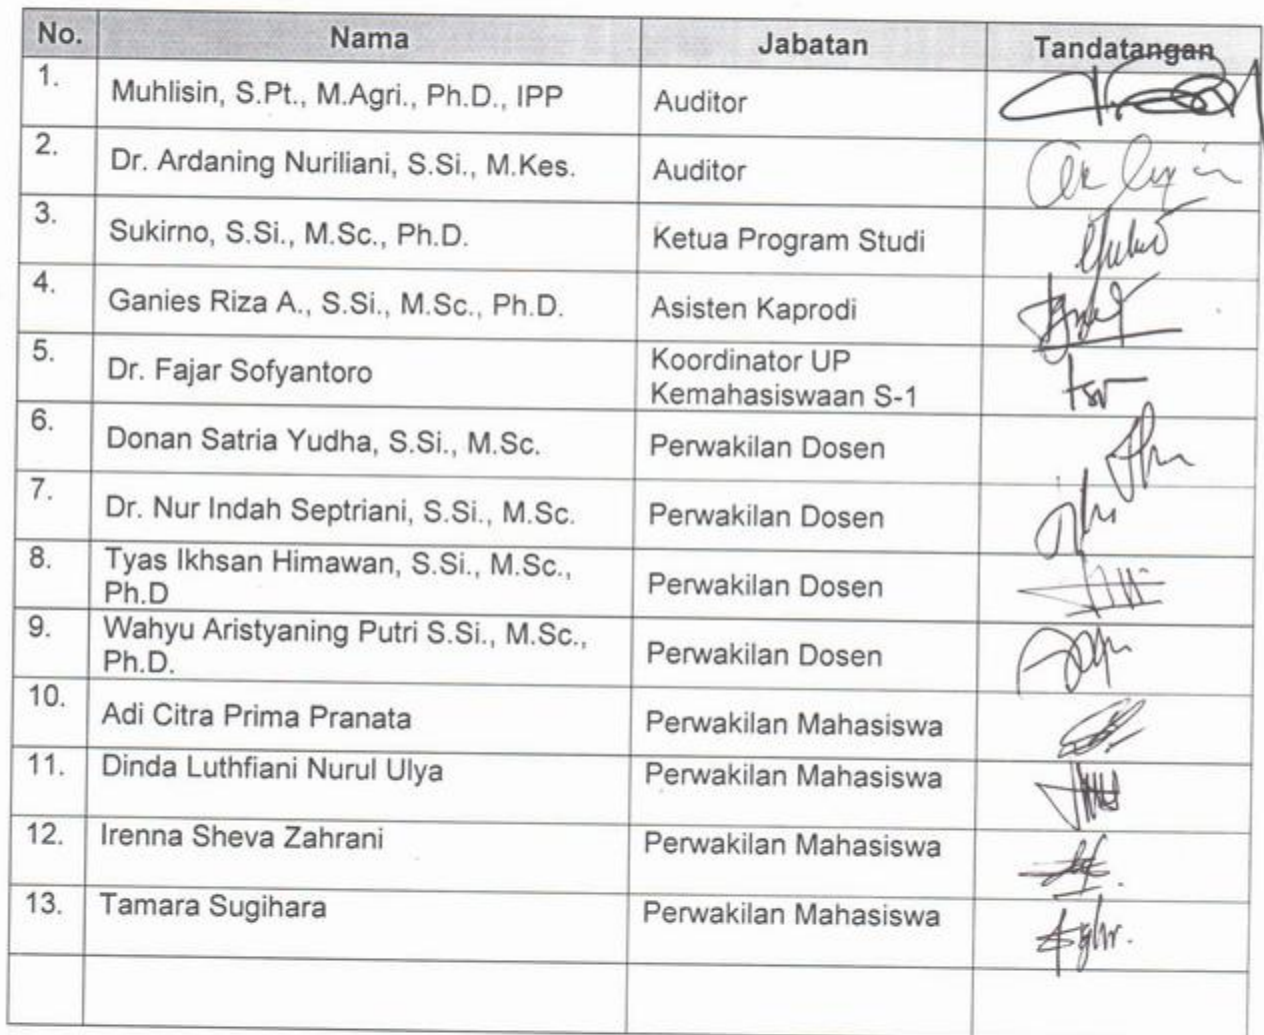 No. Nama Jabatan Tandatangan
1. Muhlisin, S.Pt., M.Agri., Ph.D., IPP Auditor
2. Dr. Ardaning Nuriliani, S.Si., M.Kes. Auditor
3. Sukirno, S.Si., M.Sc., Ph.D. Ketua Program Studi
4. Ganies Riza A., S.Si., M.Sc., Ph.D. Asisten Kaprodi
5. Dr. Fajar Sofyantoro Koordinator UP
Kemahasiswaan S-1
6. Donan Satria Yudha, S.Si., M.Sc. Perwakilan Dosen
7. Dr. Nur Indah Septriani, S.Si., M.Sc. Perwakilan Dosen
8. Tyas Ikhsan Himawan, S.Si., M.Sc.,
Ph.D Perwakilan Dosen
9. Wahyu Aristyaning Putri S.Si., M.Sc.,
Ph.D. Perwakilan Dosen
10. Adi Citra Prima Pranata Perwakilan Mahasiswa
11. Dinda Luthfiani Nurul Ulya Perwakilan Mahasiswa
12. Irenna Sheva Zahrani Perwakilan Mahasiswa
13. Tamara Sugihara Perwakilan Mahasiswa